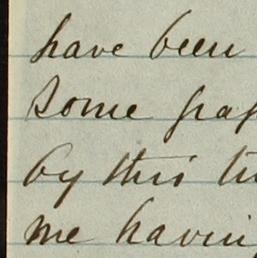 have been
some
by this
me